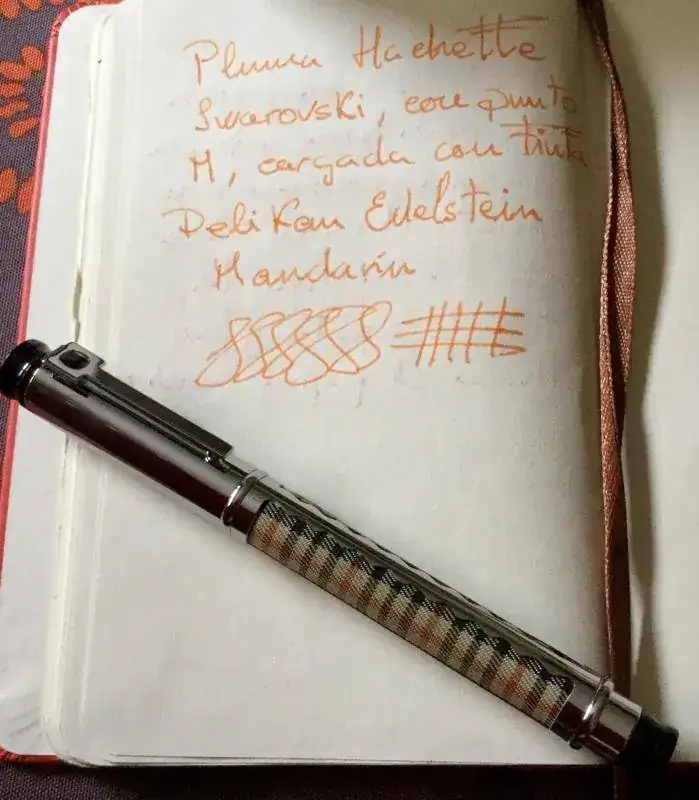 Pluma Hachette
Swarovski, con punto
M, cargada con tinta
Pelikan Edelstein
Mandarín